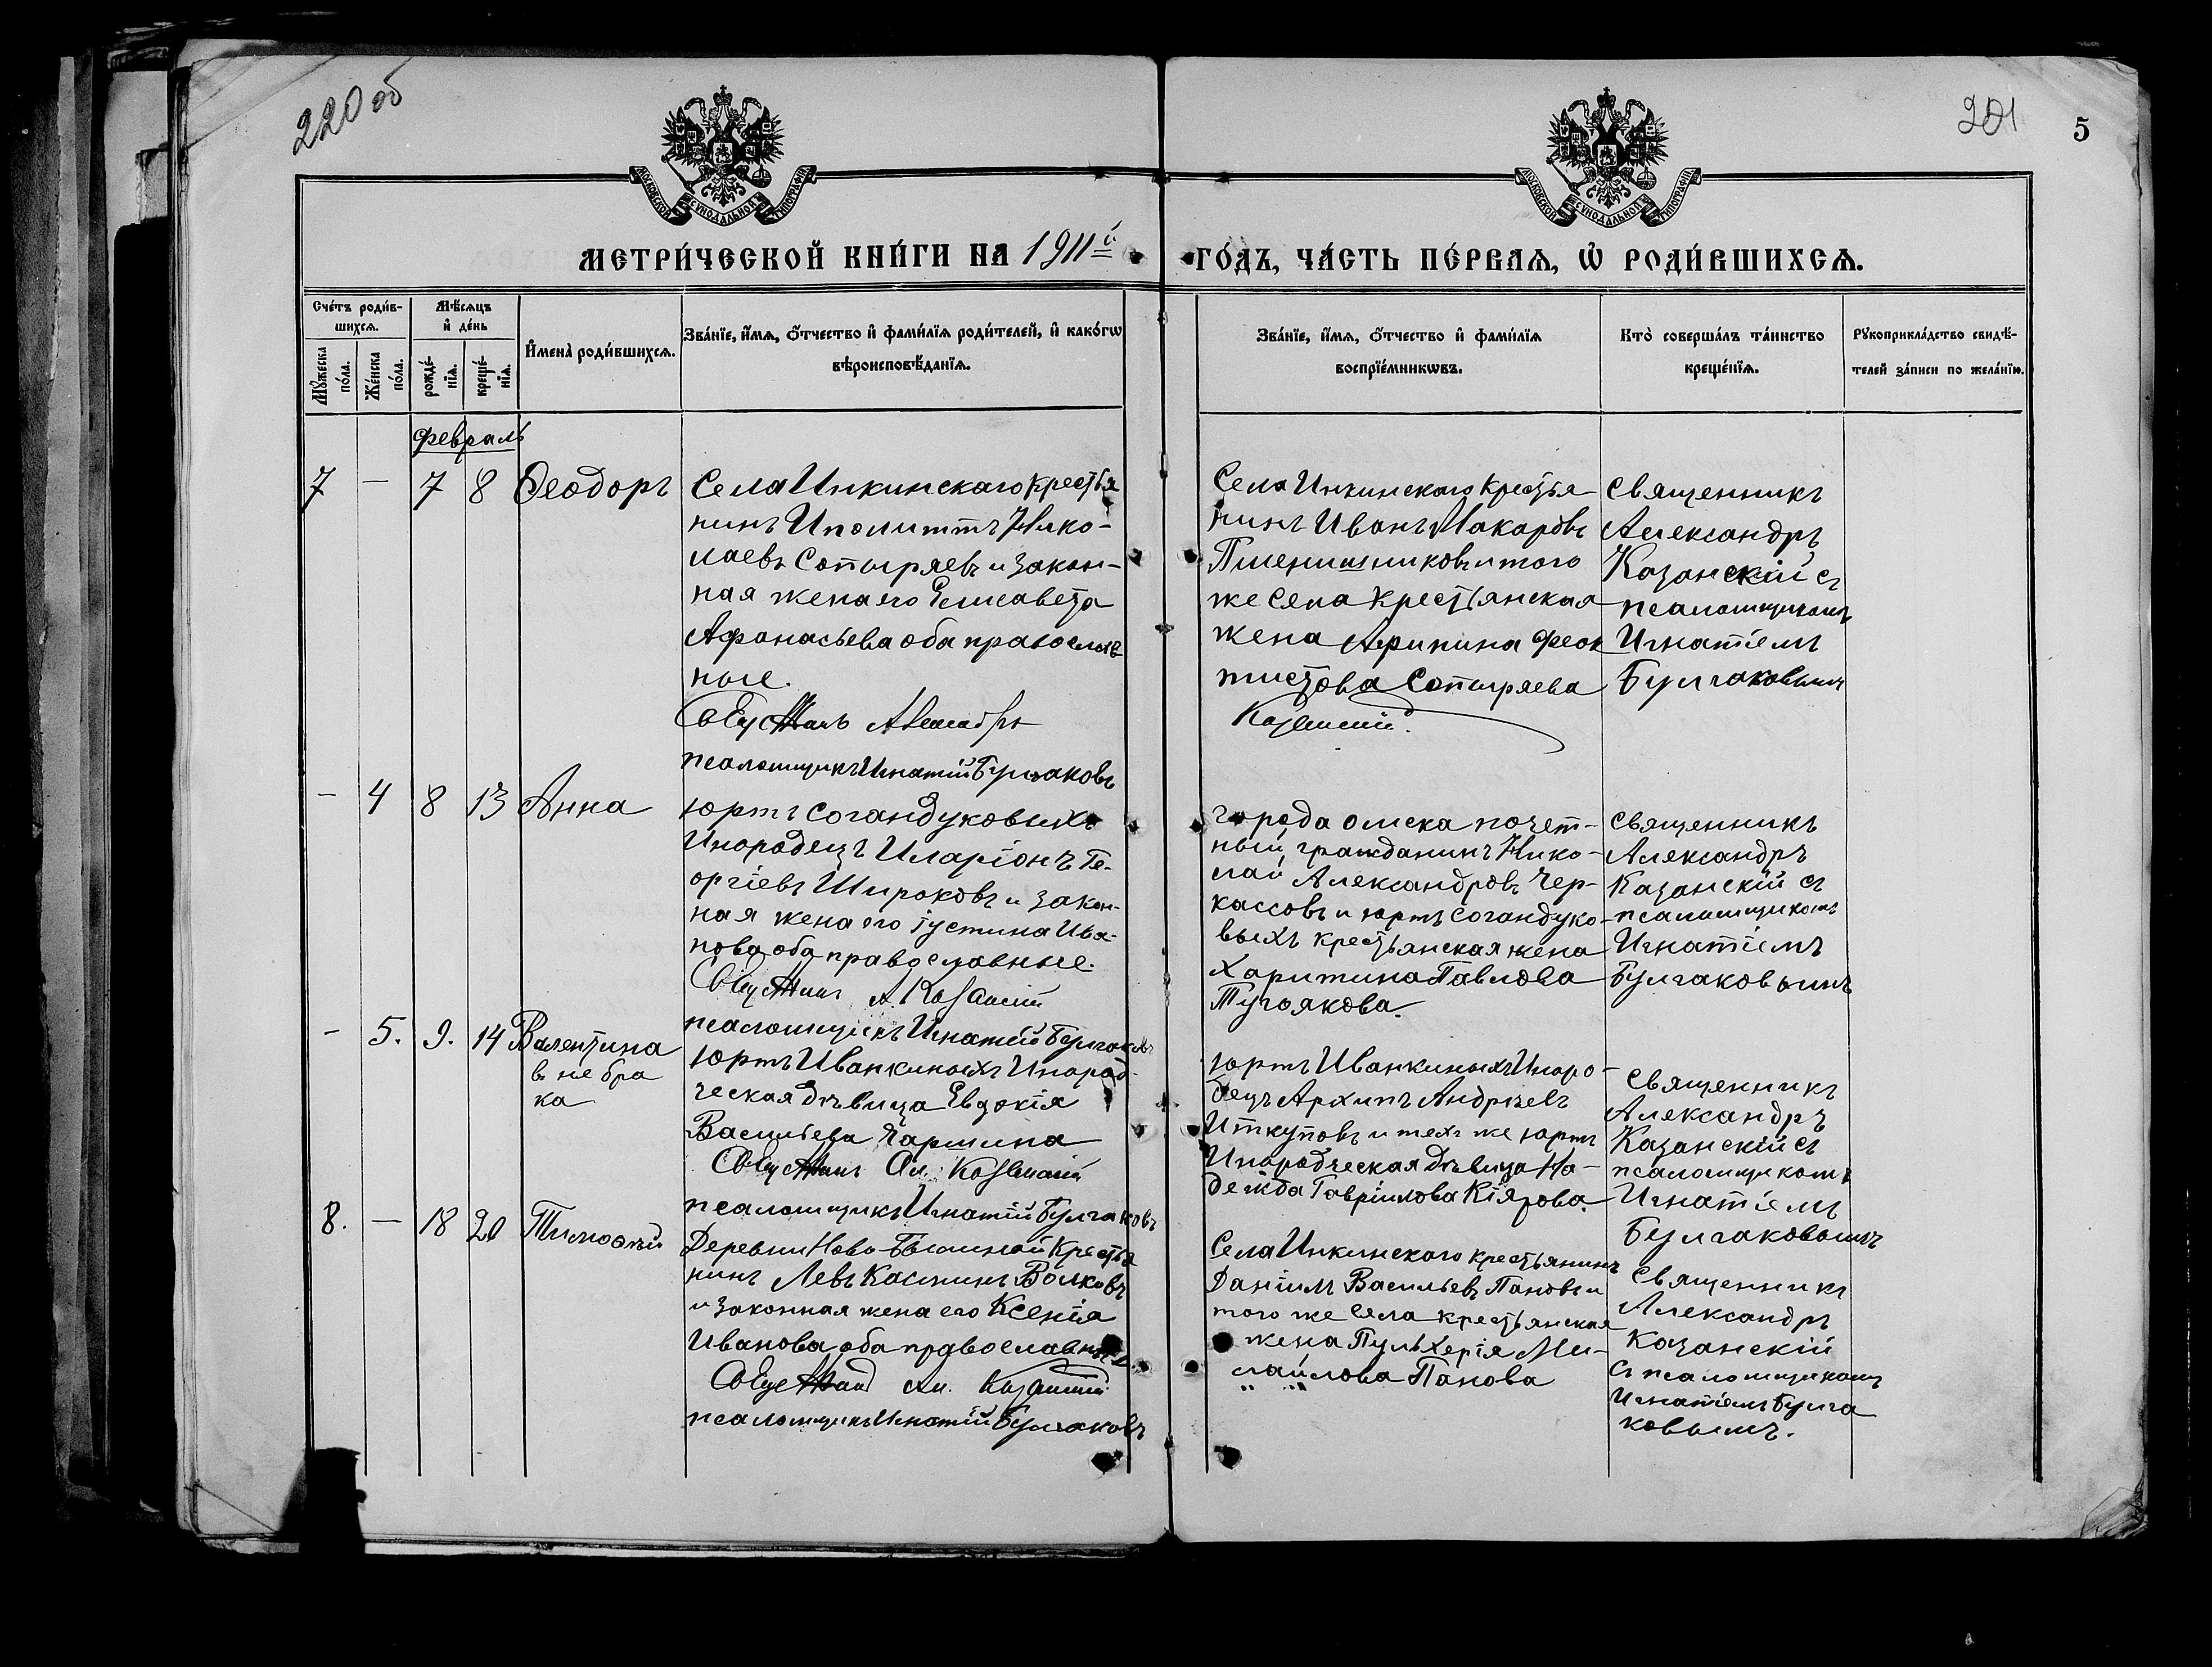 220 об
201
5
МОСКОВСКОЙ СУНОДАЛЬНОЙ ТИПОГРАФІИ
МОСКОВСКОЙ СУНОДАЛЬНОЙ ТИПОГРАФІИ
МЕТРИ́ЧЕСКОЙ КНИ́ГИ НА 1911й
ГО́ДЪ, ЧА́СТЬ ПЕ́РВАѦ, Ѡ҆ РОДИ́ВШИХСѦ.
Сче́тъ роди́в-
шихсѧ.
Мꙋ́жеска
по́ла.
Же́нска
по́ла.
Мѣ́сѧцъ
и҆ де́нь
рожде́-
нїѧ.
креще́-
нїѧ.
И҆мена̀ роди́вшихсѧ.
Зва́нїе, и҆́мѧ, ѻ҆́тчество и҆ фами́лїѧ роди́телей, и҆ како́гѡ
вѣроисповѣ́данїѧ.
Зва́нїе, и҆́мѧ, ѻ҆́тчество и҆ фами́лїѧ
воспрїе́мникѡвъ.
Кто̀ соверша́лъ та́инство
креще́нїѧ.
Рꙋкоприкла́дство свидѣ́-
телей за́писи по жела́нїю.
февраль
7 — 7 8 Ѳеодоръ
Села Инкинскаго крестья
нинъ Иполиттъ Нико-
лаевъ Сопыряевъ и закон-
ная жена его Елисавета
Афонасьева оба православ
ные.
Свящ Александръ
Казанскій.
псаломщикъ Игнатій Булгаковъ
Села Инкинскаго крестья-
нинъ Иванъ Макаровъ
Пшенишниковъ и того
же села крестьянская
жена Агрипина Феок
тистова Сопыряева
Священникъ
Александръ
Казанскій съ
псаломщикомъ
Игнатіемъ
Булгаковымъ
— 4 8 13 Анна
юртъ Согандуковыхъ
Инородецъ Иларіонъ Ге-
оргіевъ Широковъ и закон-
ная жена его Іустина Ива-
нова оба православные.
А. Казанскій
псаломщикъ Игнатій Булгаковъ
города омска почет-
ный гражданинъ Нико-
лай Александровъ Чер-
кассовъ и юртъ Согандуко-
выхъ крестьянская жена
Харитина Павлова
Тугоякова.
священникъ
Александръ
Казанскій съ
псаломщикомъ
Игнатіемъ
Булгаковымъ
— 5. 9. 14 Валентина
в не бра
ка
юртъ Иванкиныхъ Инород-
ческая дѣвица Евдокія
Васильева Чаршина
Ал. Казанскій
псаломщикъ Игнатій Булгаковъ
юртъ Иванкиныхъ Иноро-
децъ Архипъ Андрѣевъ
Иткуповъ и техъ же юртъ
Инородческая дѣвица На-
дежда Гавріилова Кіярова.
священникъ
Александръ
Казанскій съ
псаломщикомъ
Игнатіемъ
Булгаковымъ
8. — 18 20 Тимофѣй
Деревни Ново-Былиной Крестья
нинъ Левъ Касьтинъ Волковъ
и законная жена его Ксенія
Иванова оба православные.
Ал. Казанскій
псаломщикъ Игнатій Булгаковъ
Села Инкинскаго крестьянинъ
Даніилъ Васильевъ Пановъ и
того же села крестьянская
жена Пульхерія Ми-
хайлова Панова
священникъ
Александръ
Казанскій
съ псаломщикомъ
Игнатіемъ Булга
ковымъ.